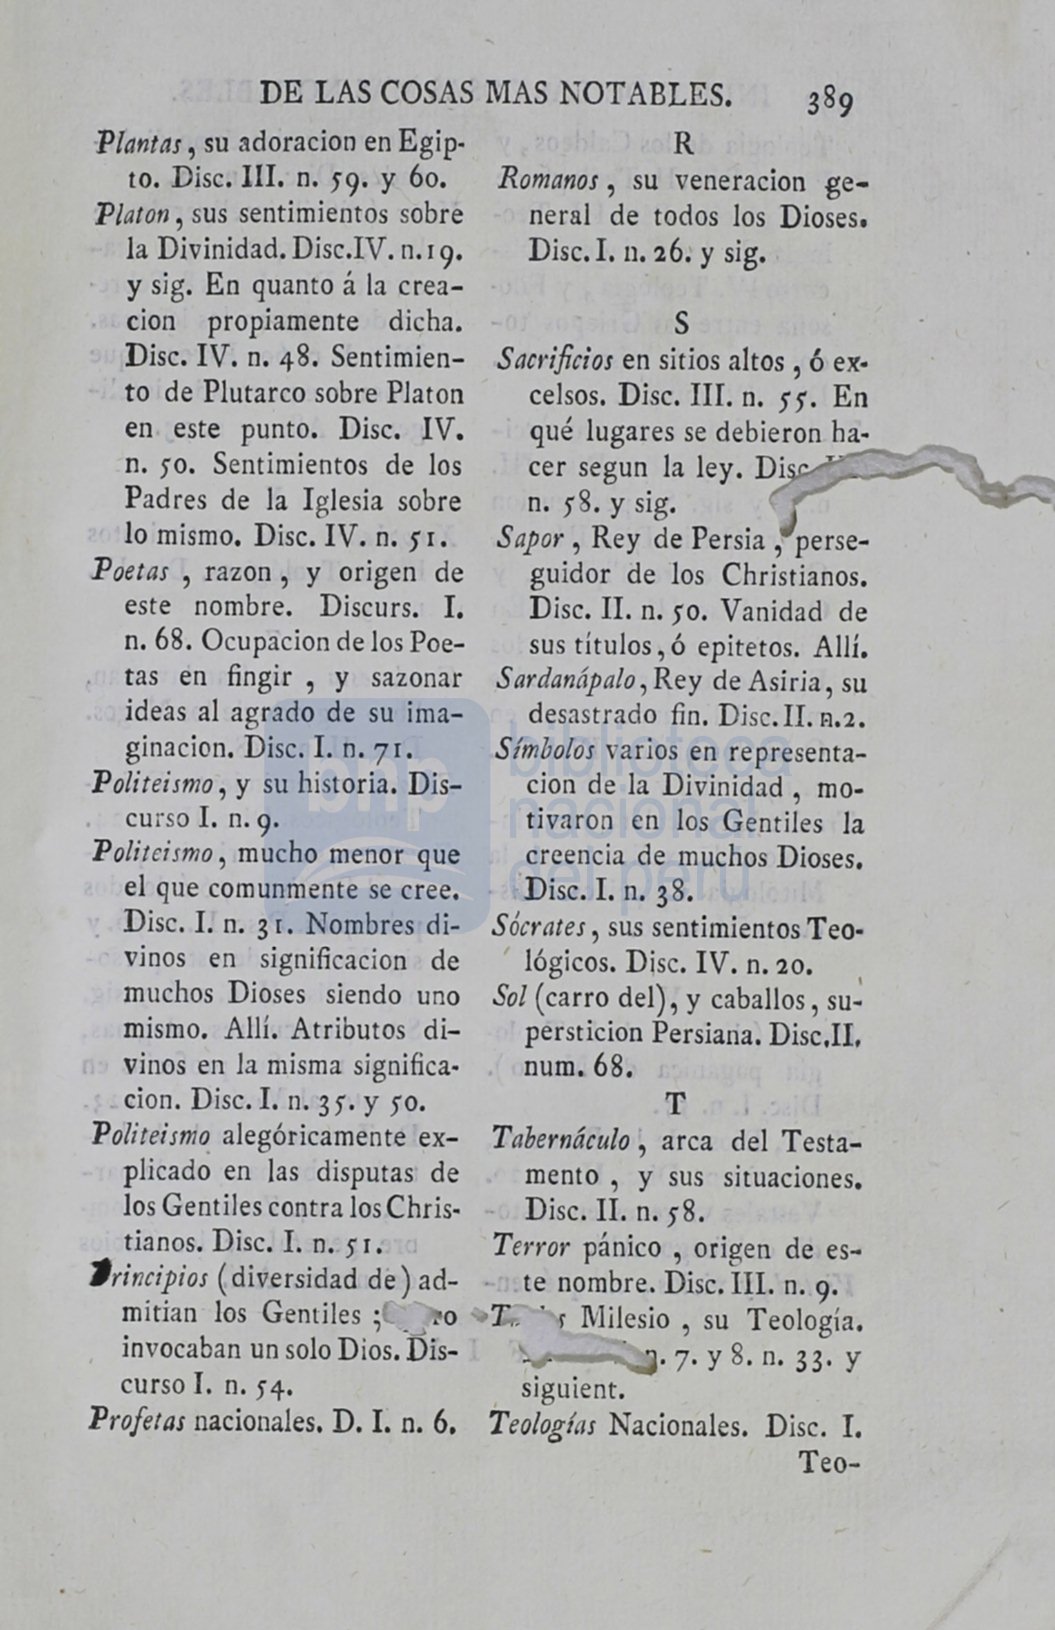 DE LAS COSAS MAS NOTABLES. 389
Plantas, su adoracion en Egip-
to. Disc. III. n. 59. y 60.
Platon, sus sentimientos sobre
la Divinidad. Disc.IV. n.19.
y sig. En quanto á la crea-
cion propiamente dicha.
Disc. IV. n. 48. Sentimien-
to de Plutarco sobre Platon
en este punto. Disc. IV.
n. 50. Sentimientos de los
Padres de la Iglesia sobre
lo mismo. Disc. IV. n. 51.
Poetas, razon, y origen de
este nombre. Discurs. I.
n. 68. Ocupacion de los Poe-
tas en fingir, y sazonar
ideas al agrado de su ima-
ginacion. Disc. I. n. 71.
Politeismo, y su historia. Dis-
curso I. n. 9.
Politeismo, mucho menor que
el que comunmente se cree.
Disc. I. n. 31. Nombres di-
vinos en significacion de
muchos Dioses siendo uno
mismo. Allí. Atributos di-
vinos en la misma significa-
cion. Disc. I. n. 35. y 50.
Politeismo alegóricamente ex-
plicado en las disputas de
los Gentiles contra los Chris-
tianos. Disc. I. n. 51.
Principios (diversidad de) ad-
mitian los Gentiles;
invocaban un solo Dios. Dis-
curso I. n. 54.
Profetas nacionales. D. I. n. 6.
R
Romanos, su veneracion ge-
neral de todos los Dioses.
Disc. I. n. 26. y sig.
S
Sacrificios en sitios altos, ó ex-
celsos. Disc. III. n. 55. En
qué lugares se debieron ha-
cer segun la ley. Disc.
n. 58. y sig.
Sapor, Rey de Persia, perse-
guidor de los Christianos.
Disc. II. n. 50. Vanidad de
sus títulos, ó epitetos. Allí.
Sardanápalo, Rey de Asiria, su
desastrado fin. Disc. II. n.2.
Símbolos varios en representa-
cion de la Divinidad, mo-
tivaron en los Gentiles la
creencia de muchos Dioses.
Disc. I. n. 38.
Sócrates, sus sentimientos Teo-
lógicos. Disc. IV. n. 20.
Sol (carro del), y caballos, su-
persticion Persiana. Disc.II.
num. 68.
T
Tabernáculo, arca del Testa-
mento, y sus situaciones.
Disc. II. n. 58.
Terror pánico, origen de es-
te nombre. Disc. III. n. 9.
Milesio, su Teología.
n. 7. y 8. n. 33. y
siguient.
Teologías Nacionales. Disc. I.
Teo-
bnp biblioteca
nacional
del perú